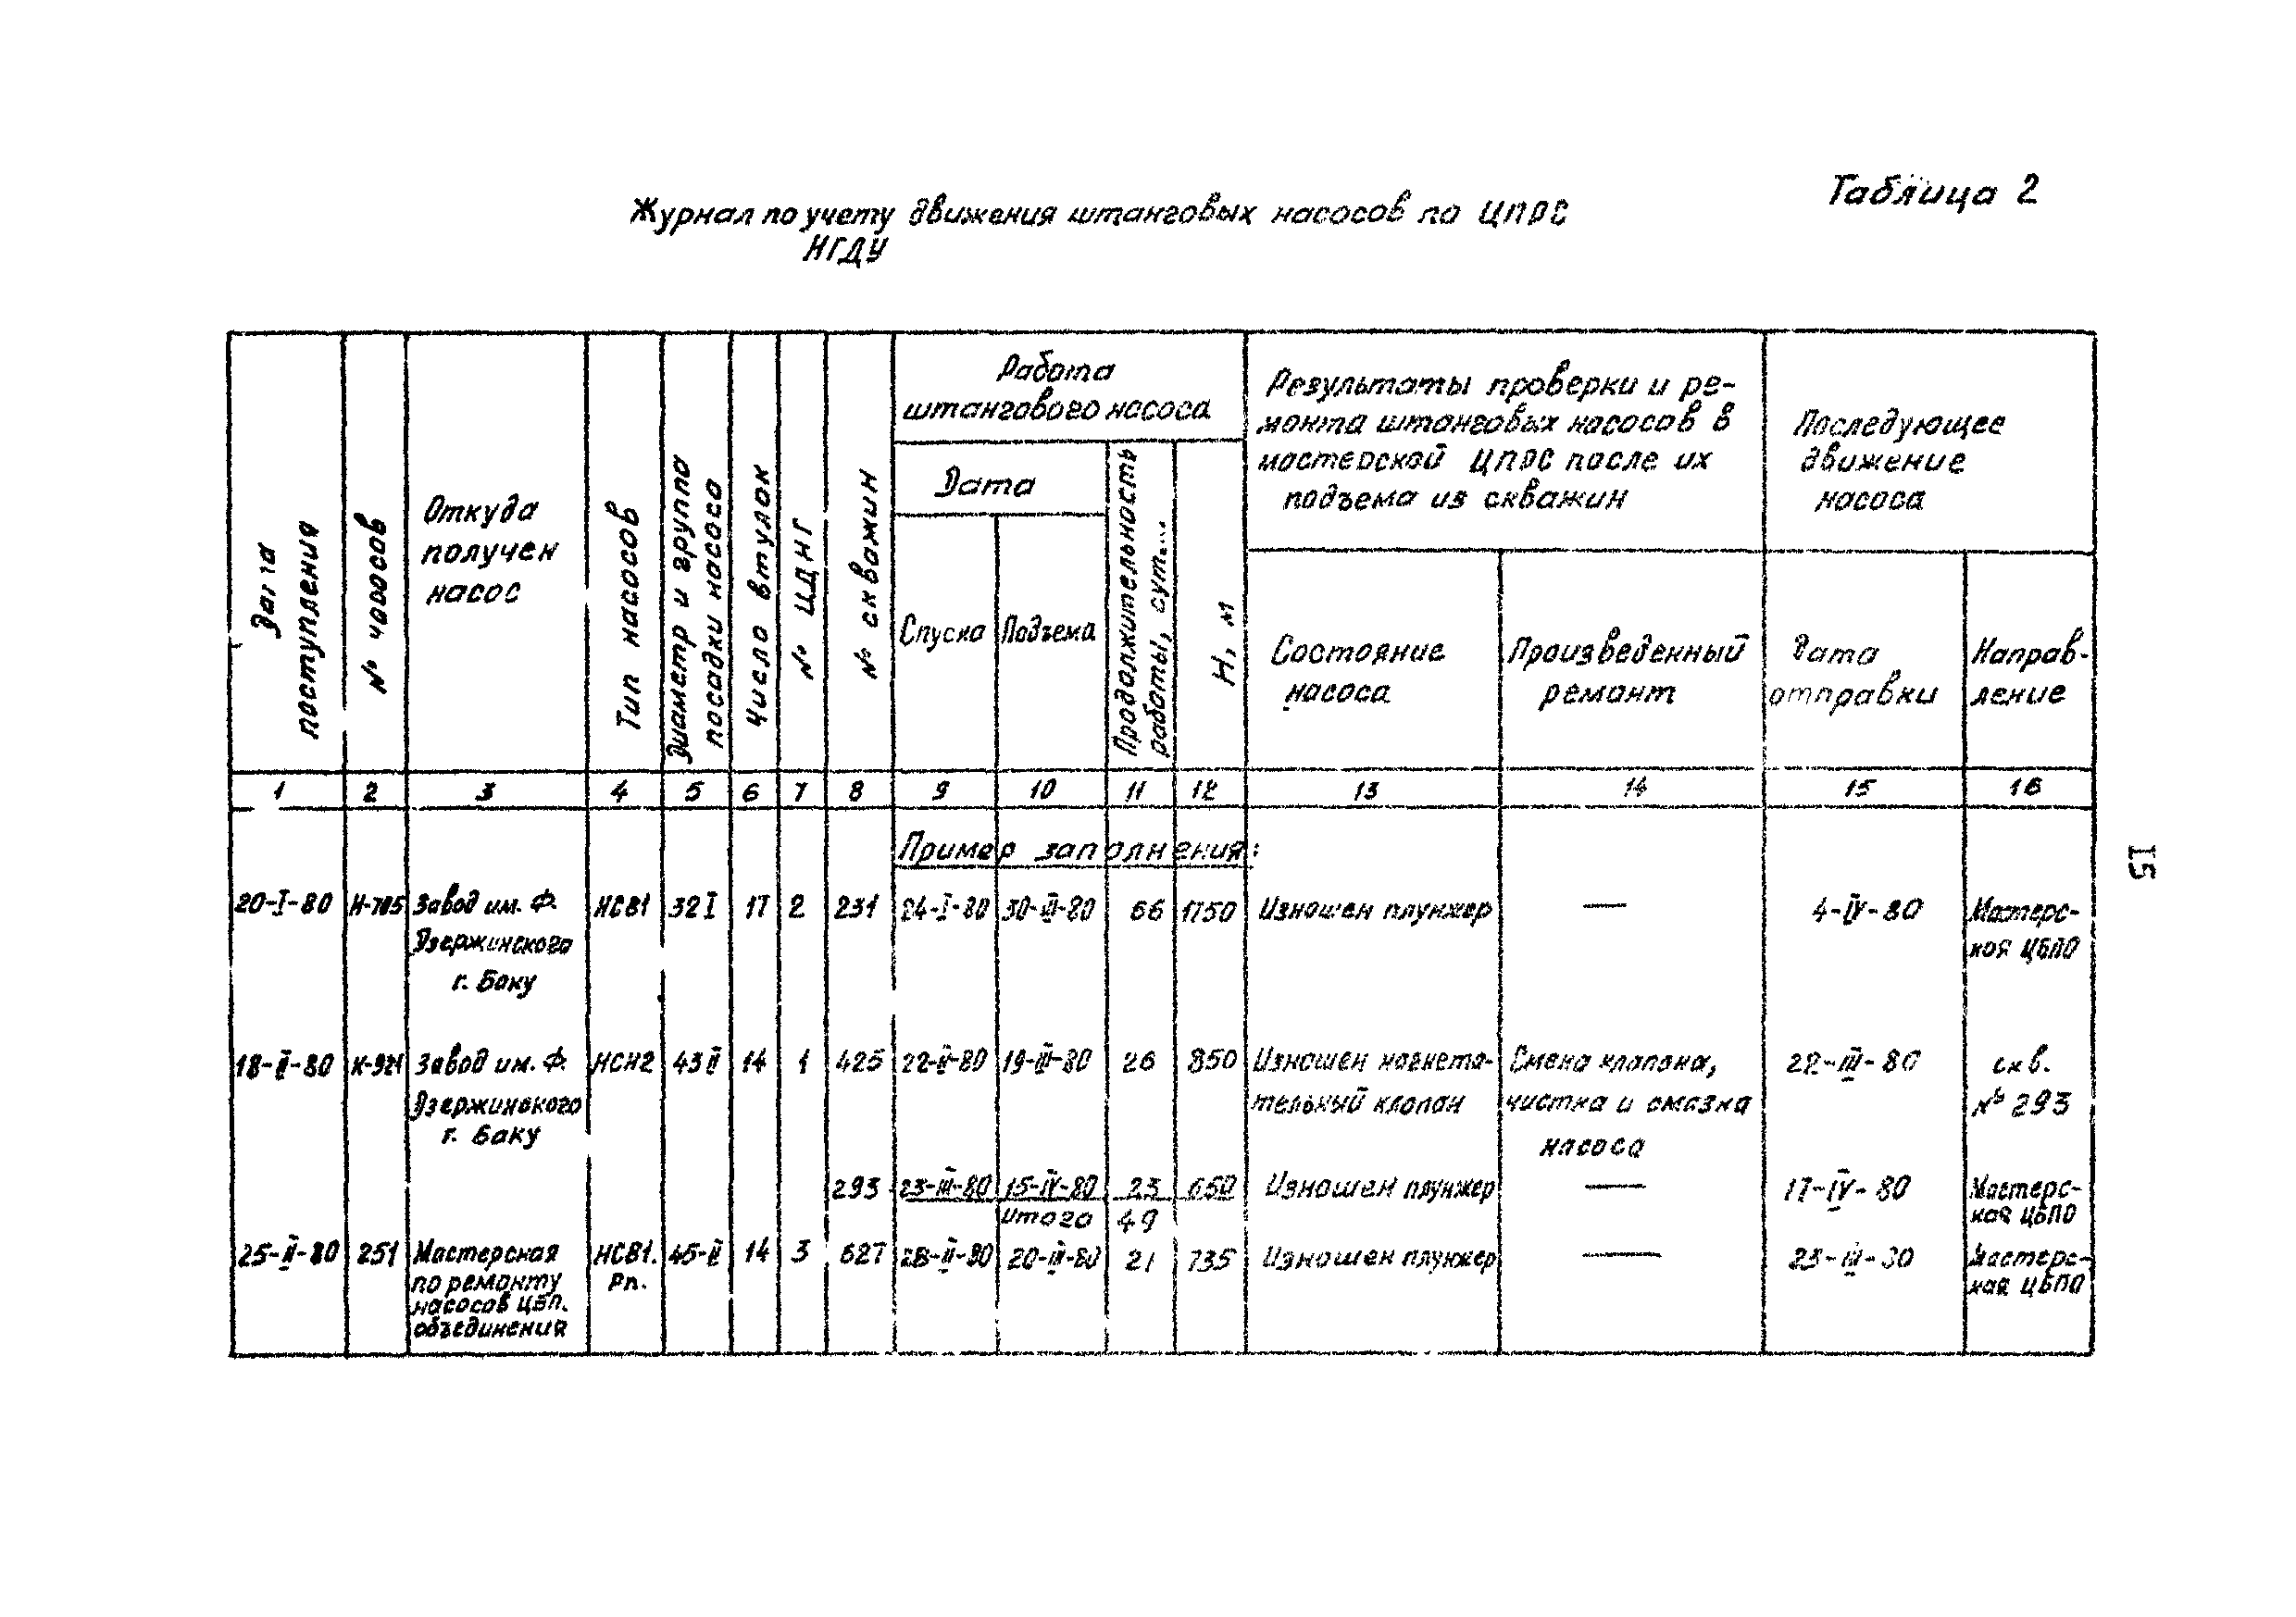 Таблица 2
Журнал по учету движения штанговых насосов по ЦПРС
НГДУ
Дата
поступления
№ насосов
Откуда
получен
насос
Тип насосов
Диаметр и группа
посадки насоса
Число втулок
№ ЦДНГ
№ скважин
Работа
штангового насоса
Дата
Спуска
Подъема
Продолжительность
работы, сут....
Н, м
Результаты проверки и ре-
монта штанговых насосов в
мастерской ЦПРС после их
подъема из скважин
Состояние
насоса
Произведенный
ремонт
Последующее
движение
насоса
Дата
отправки
Направ-
ление
1 2 3 4 5 6 7 8 9 10 11 12 13 14 15 16
Пример заполнения:
20-I-80 Н-785 Завод им. Ф. НСВ1 32 I 17 2 231 24-I-80 30-III-80 66 1750 Изношен плунжер — 4-IV-80 Мастерс-
Дзержинского кая ЦБПО
г. Баку
18-II-80 К-921 Завод им. Ф. НСН2 43 II 14 1 425 22-II-80 19-III-80 26 850 Изношен нагнета- Смена клапана, 22-III-80 скв.
Дзержинского тельный клапан чистка и смазка № 293
г. Баку насоса
293 23-III-80 15-IV-80 23 650 Изношен плунжер — 17-IV-80 Мастерс-
Итого 49 кая ЦБПО
25-II-80 251 Мастерская НСВ1. 45-II 14 3 627 28-II-80 20-III-80 21 735 Изношен плунжер — 23-III-80 Мастерс-
по ремонту Рп. кая ЦБПО
насосов ЦБП.
объединения
15